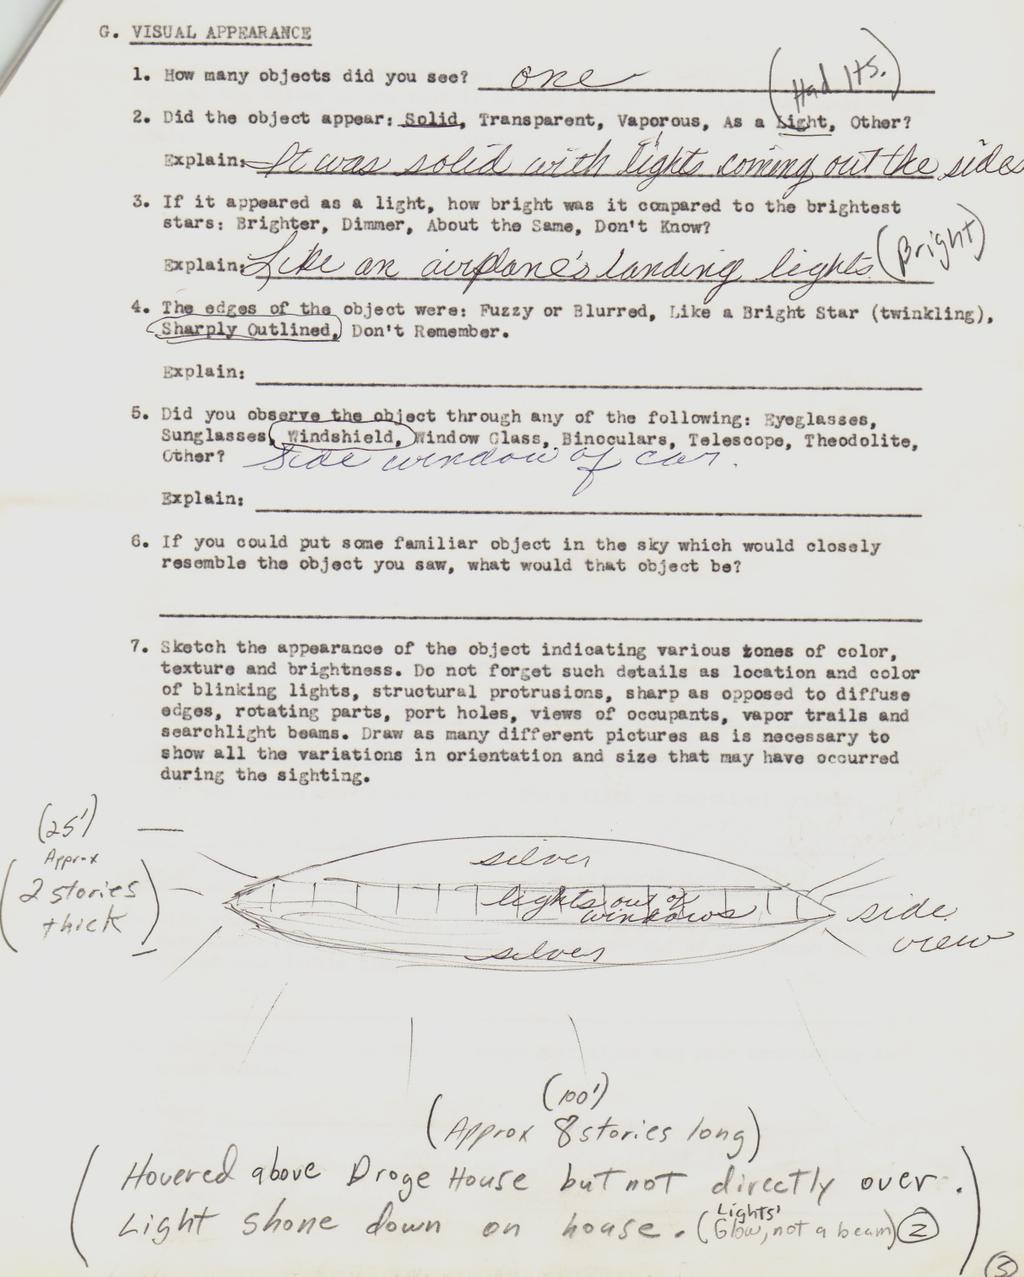 G. VISUAL APPEARANCE
1. How many objects did you see? one
(Had lts.)
2. Did the object appear: Solid, Transparent, Vaporous, As a Light, Other?
Explain: It was solid with lights coming out the side
3. If it appeared as a light, how bright was it compared to the brightest
stars: Brighter, Dimmer, About the Same, Don't Know?
Explain: Like an airplane's landing lights (Bright)
4. The edges of the object were: Fuzzy or Blurred, Like a Bright Star (twinkling),
Sharply Outlined, Don't Remember.
Explain:
5. Did you observe the object through any of the following: Eyeglasses,
Sunglasses, Windshield, Window Glass, Binoculars, Telescope, Theodolite,
Other? Side window of car.
Explain:
6. If you could put some familiar object in the sky which would closely
resemble the object you saw, what would that object be?
7. Sketch the appearance of the object indicating various tones of color,
texture and brightness. Do not forget such details as location and color
of blinking lights, structural protrusions, sharp as opposed to diffuse
edges, rotating parts, port holes, views of occupants, vapor trails and
searchlight beams. Draw as many different pictures as is necessary to
show all the variations in orientation and size that may have occurred
during the sighting.
(25')
Approx
(2 stories
thick)
silver
lights out of
windows
silver
side
view
(100')
(Approx 8 stories long)
(Hovered above Droge House but not directly over.
Light shone down on house. (Lights' Glow, not a beam) 2)
3